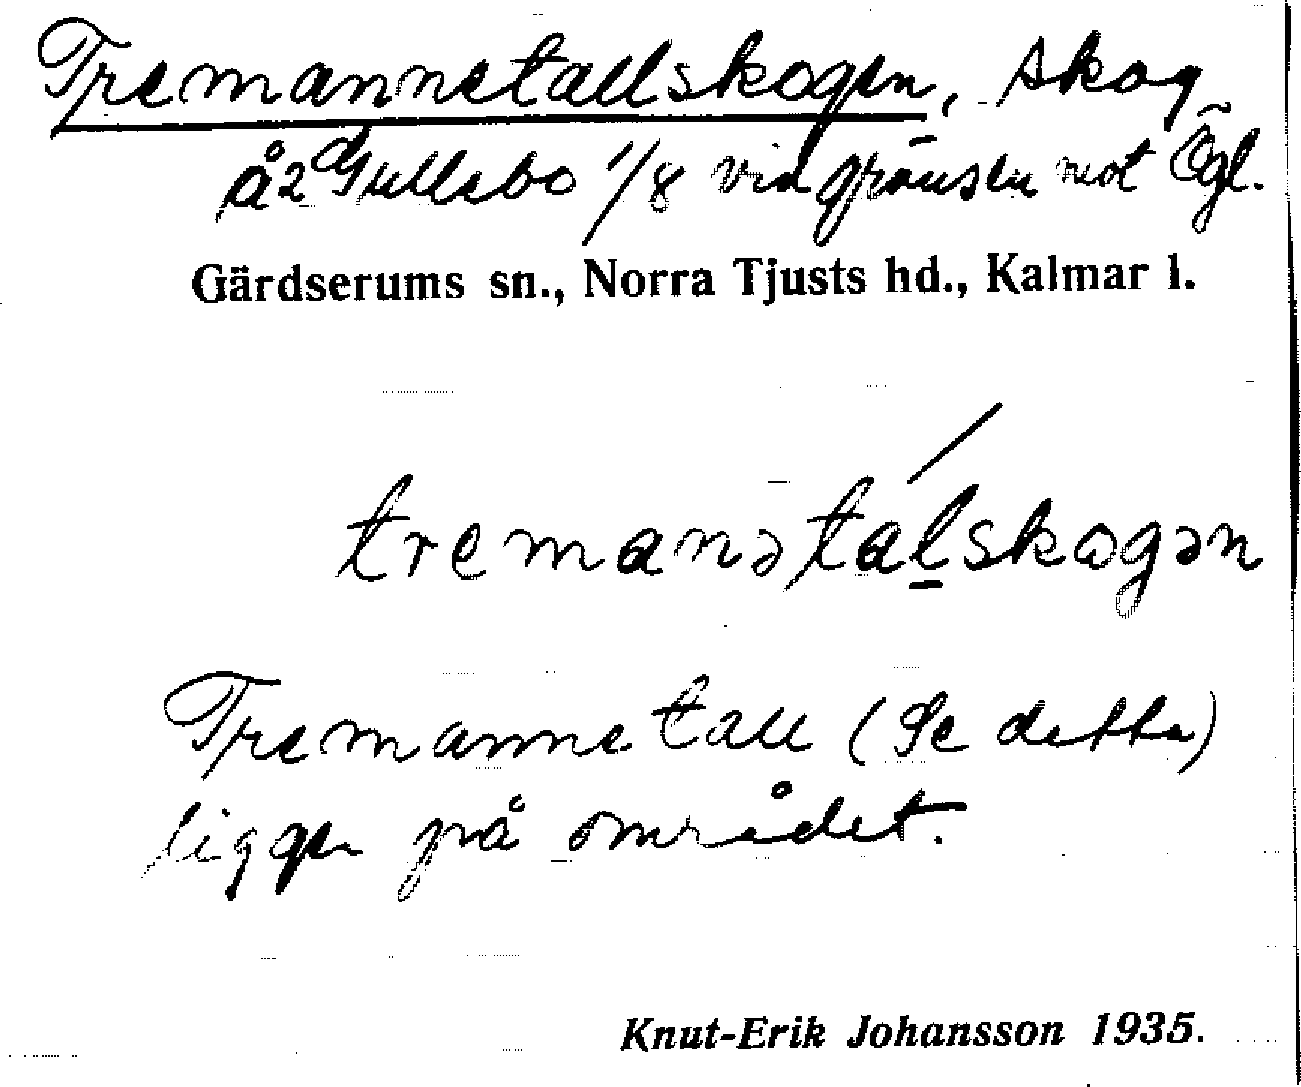 Tremannetallskogen, skog
å 2 d Gullebo 1/8 vid gränsen mot Ögl.
Gärdserums sn., Norra Tjusts hd., Kalmar l.
tremanətalskogən
Tremannetall (Se detta)
ligger på området.
Knut-Erik Johansson 1935.